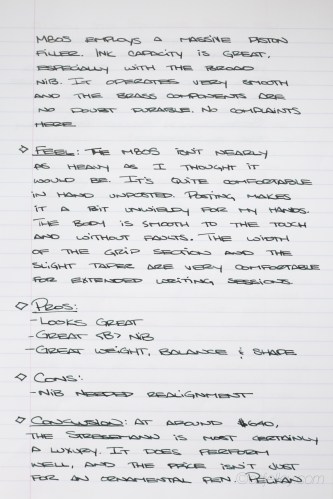 M805 EMPLOYS A MASSIVE PISTON
FILLER. INK CAPACITY IS GREAT,
ESPECIALLY WITH THE BROAD
NIB. IT OPERATES VERY SMOOTH
AND THE BRASS COMPONENTS ARE
NO DOUBT DURABLE. NO COMPLAINTS
HERE
◇ FEEL: THE M805 ISN'T NEARLY
AS HEAVY AS I THOUGHT IT
WOULD BE. IT'S QUITE COMFORTABLE
IN HAND UNPOSTED. POSTING MAKES
IT A BIT UNWIELDY FOR MY HANDS.
THE BODY IS SMOOTH TO THE TOUCH
AND WITHOUT FAULTS. THE WIDTH
OF THE GRIP SECTION AND THE
SLIGHT TAPER ARE VERY COMFORTABLE
FOR EXTENDED WRITING SESSIONS.
◇ PROS:
-LOOKS GREAT
-GREAT <B> NIB
-GREAT WEIGHT, BALANCE & SHAPE
◇ CONS:
-NIB NEEDED REALIGNMENT
◇ CONCLUSION: AT AROUND $640,
THE STRESEMANN IS MOST CERTAINLY
A LUXURY. IT DOES PERFORM
WELL, AND THE PRICE ISN'T JUST
FOR AN ORNAMENTAL PEN. PELIKAN